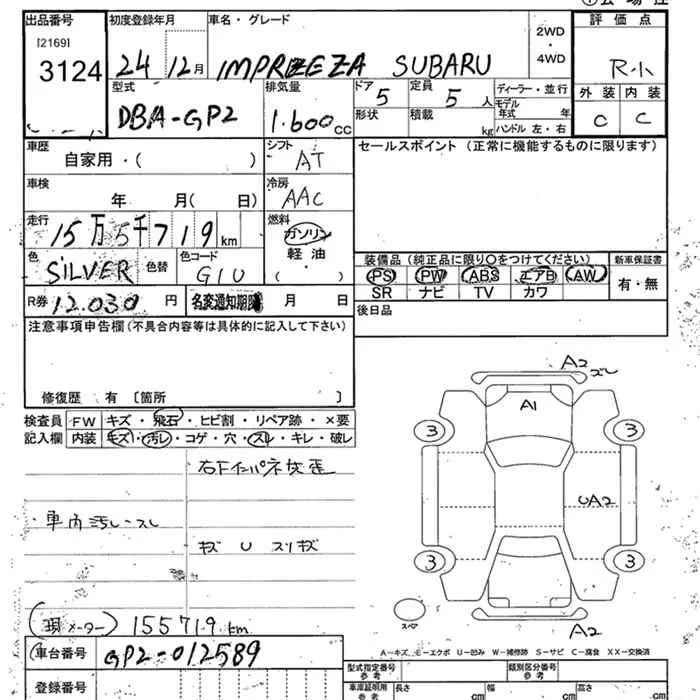 出品番号
初度登録年月
車名・グレード
評価点
[2169]
3124
24
12月
IMPREZA SUBARU
2WD
・
4WD
R小
型式
DBA-GP2
排気量
1.600cc
ドア
5
定員
5人
ディーラー・並行
モデル年式 年
ハンドル 左・右
形状
積載
kg
外装
内装
C
C
車歴
自家用・( )
シフト
AT
セールスポイント (正常に機能するものに限ります)
車検
年 月( 日)
冷房
AAC
走行
15万5千719km
燃料
ガソリン
軽油
( ・ )
色
SILVER
色替
色コード
G1U
装備品(純正品に限り○をつけてください)
新車保証書
PS PW ABS エアB AW
SR ナビ TV カワ
有・無
R券
12.030円
名変通知期限 月 日
後日品
注意事項申告欄(不具合内容等は具体的に記入して下さい)
修復歴 有〔箇所 〕
検査員
記入欄
FW キズ・飛石・ヒビ割・リペア跡・×要
内装 キズ・汚レ・コゲ・穴・スレ・キレ・破レ
・車内汚レ・スレ
キズ U スリキズ
A2
ズレ
A1
3
3
UA2
3
3
スペア
A2
(現メーター) 155719km
A-キズ E-エクボ U-凹み W-補修跡 S-サビ C-腐食 XX-交換済
車台番号
GP2-012589
登録番号
型式指定番号
参考
類別区分番号
参考
車庫証明用
参考
長さ
cm
幅
cm
高さ
cm